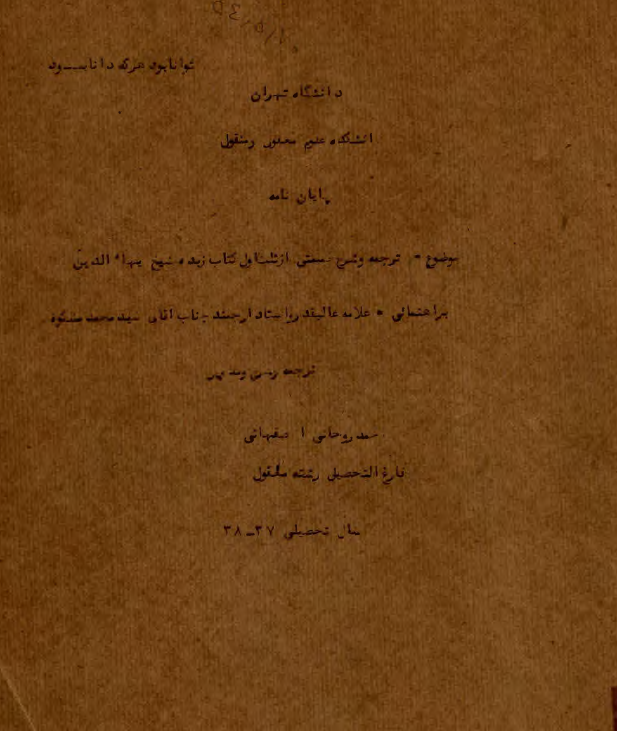 توانابود هرکه دانابود
دانشگاه تهران
انشکده علوم معقول ومنقول
پایان نامه
موضوع - ترجمه وشرح قسمتی ازثلث اول کتاب زبده شیخ بهاء الدین
براهنمائی • علامه عالیقدرواستاد ارجمند جناب آقای سیدمحمدمشکوه
ترجمه
روحانی اصفهانی
فارغ التحصیل رشته منقول
سال تحصیلی ۳۷ـ۳۸